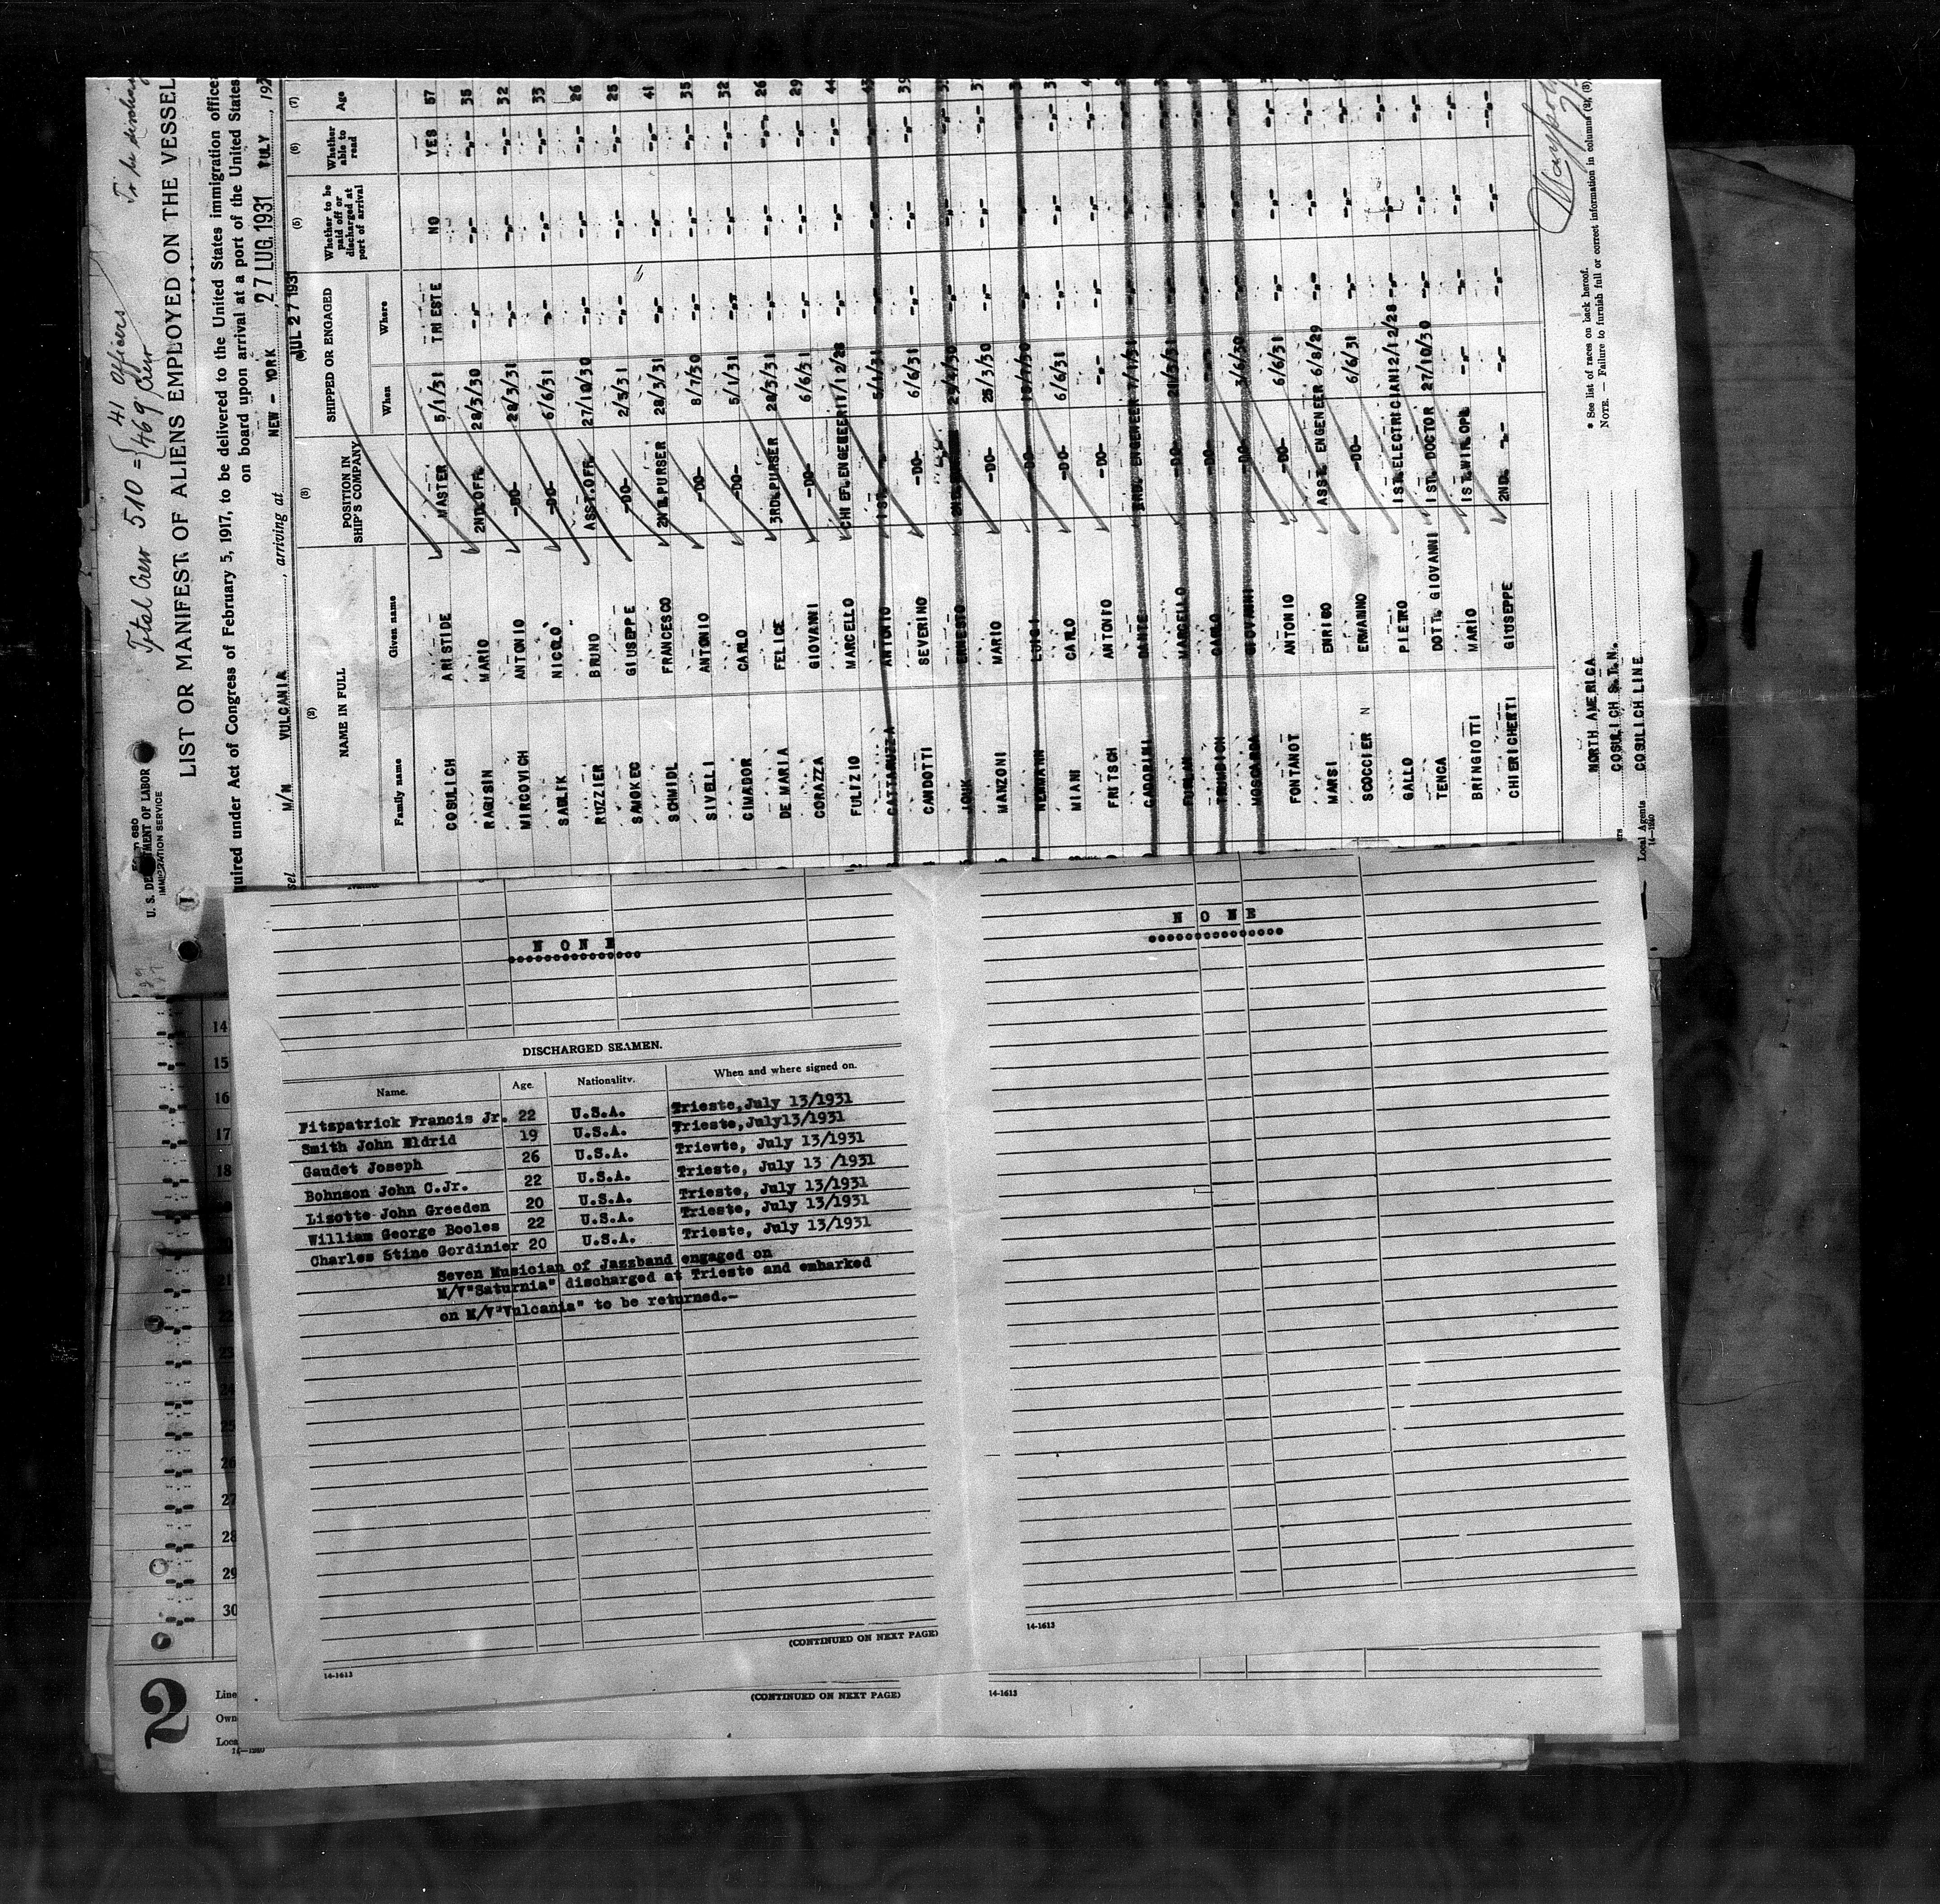 Total Crew 510 = { 41 Officers
469 Crew
To be discharg
U. S. DEPARTMENT OF LABOR
IMMIGRATION SERVICE
LIST OR MANIFEST OF ALIENS EMPLOYED ON THE VESSEL
quired under Act of Congress of February 5, 1917, to be delivered to the United States immigration office
on board upon arrival at a port of the United States
sel M/N VULCANIA, arriving at NEW - YORK, 27 LUG. 1931 JULY, 192
JUL 27 1931
(2) (3) (5) (6) (7)
NAME IN FULL POSITION IN SHIP'S COMPANY SHIPPED OR ENGAGED Whether to be paid off or discharged at port of arrival Whether able to read Age
Family name Given name When Where
COSULICH ARISTIDE MASTER 5/1/31 TRIESTE NO YES 57
RAGISIN MARIO 2ND.OFF. 28/3/30 -,,- -,,- -,,- 35
MIRCOVICH ANTONIO -DO- 28/3/31 -,,- -,,- -,,- 32
SABLIK NICOLO -DO- 6/6/31 -,,- -,,- -,,- 33
RUZZIER BRUNO ASST.OFF. 27/10/30 -,,- -,,- -,,- 26
SAMOKEC GIUSEPPE -DO- 2/5/31 -,,- -,,- -,,- 25
SCHMIDL FRANCESCO 2ND.PURSER 28/3/31 -,,- -,,- -,,- 41
SIVELLI ANTONIO -DO- 8/7/30 -,,- -,,- -,,- 35
CIMADOR CARLO -DO- 5/1/31 -,,- -,,- -,,- 32
DE MARIA FELICE 3RD.PURSER 28/3/31 -,,- -,,- -,,- 26
CORAZZA GIOVANNI -DO- 6/6/31 -,,- -,,- -,,- 29
FULIZIO MARCELLO CHIEF.ENGENEER 17/12/28 -,,- -,,- -,,- 44
CATTARUZZA ANTONIO 1ST. -,,- 5/1/31 -,,- -,,- -,,-
CANDOTTI SEVERINO -DO- 6/6/31 -,,- -,,- -,,- 39
ERNESTO -,,- -,,- -,,-
MANZONI MARIO -DO- 25/3/30 -,,- -,,- -,,-
NEWMANN LUIGI -DO- 18/7/30 -,,- -,,- -,,-
MIANI CARLO -DO- 6/6/31 -,,- -,,- -,,-
FRITSCH ANTONIO -DO- -,,- -,,- -,,- -,,-
CADORINI DANTE ENGENEER 7/1/31
FURLANI MARCELLO -DO- 21/3/31
CARLO -DO-
MOSCARDA GIOVANNI -DO- 3/6/30 -,,- -,,- -,,-
FONTANOT ANTONIO -DO- 6/6/31 -,,- -,,- -,,-
MARSI ENRICO ASST. ENGENEER 6/8/29 -,,- -,,- -,,-
SCOCCIER N ERMANNO -DO- 6/6/31 -,,- -,,- -,,-
GALLO PIETRO 1ST.ELECTRICIAN 12/12/28 -,,- -,,- -,,-
TENCA DOTT. GIOVANNI 1ST. DOCTOR 27/10/30 -,,- -,,- -,,-
BRINGIOTTI MARIO 1ST.WIR.OPR. -,,- -,,- -,,- -,,-
CHIERICHETTI GIUSEPPE 2ND. -,,- -,,- -,,- -,,- -,,-
NORTH AMERICA
ers COSULICH S.T.N.
Local Agents COSULICH LINE
14—1240
* See list of races on back hereof.
NOTE. — Failure to furnish full or correct information in columns (2), (3),
N O N E
DISCHARGED SEAMEN.
Name. Age. Nationality. When and where signed on.
Fitzpatrick Francis Jr. 22 U.S.A. Trieste,July 13/1931
Smith John Eldrid 19 U.S.A. Trieste,July13/1931
Gaudet Joseph 26 U.S.A. Triewte, July 13/1931
Bohnson John C.Jr. 22 U.S.A. Trieste, July 13 /1931
Lisotte John Greeden 20 U.S.A. Trieste, July 13/1931
William George Booles 22 U.S.A. Trieste, July 13/1931
Charles Stine Gordinier 20 U.S.A. Trieste, July 13/1931
Seven Musician of Jazzband engaged on
M/V"Saturnia" discharged at Trieste and embarked
on M/V"Vulcania" to be returned.-
(CONTINUED ON NEXT PAGE)
14-1613
N O N E
14-1613
(CONTINUED ON NEXT PAGE)
14-1613
14
15
16
17
18
19
20
21
22
23
24
25
26
27
28
29
30
2
Line
Own
Loca
14—1240